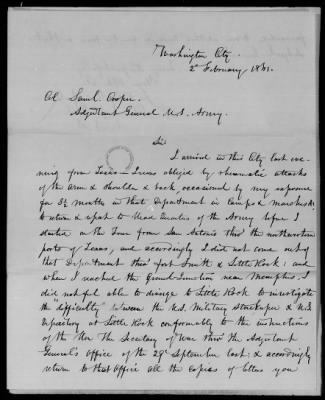 Washington City.
2d February 1861.
Col. Saml. Cooper.
Adjutant General U.S. Army.
Sir
I arrived in this City last eve-
ning from Texas - I was obliged by rheumatic attacks
of the arm & shoulder & back, occasioned by my exposure
for 3½ months in that Department in Camps & marches &c
to return & report to Head Quarters of the Army before I
started on the Tour from San Antonio thro' the northwestern
parts of Texas, and accordingly I did not come out of
that Department thro' Fort Smith & Little Rock; and
when I reached the Grand Junction near Memphis, I
did not feel able to diverge to Little Rock to investigate
the difficulty between the U.S. Military Storekeeper & U.S.
Depositary at Little Rock conformably to the instructions
of the Hon The Secretary of War thro' the Adjutant
General's Office of the 29th September last; & accordingly
return to that Office all the copies of letters you